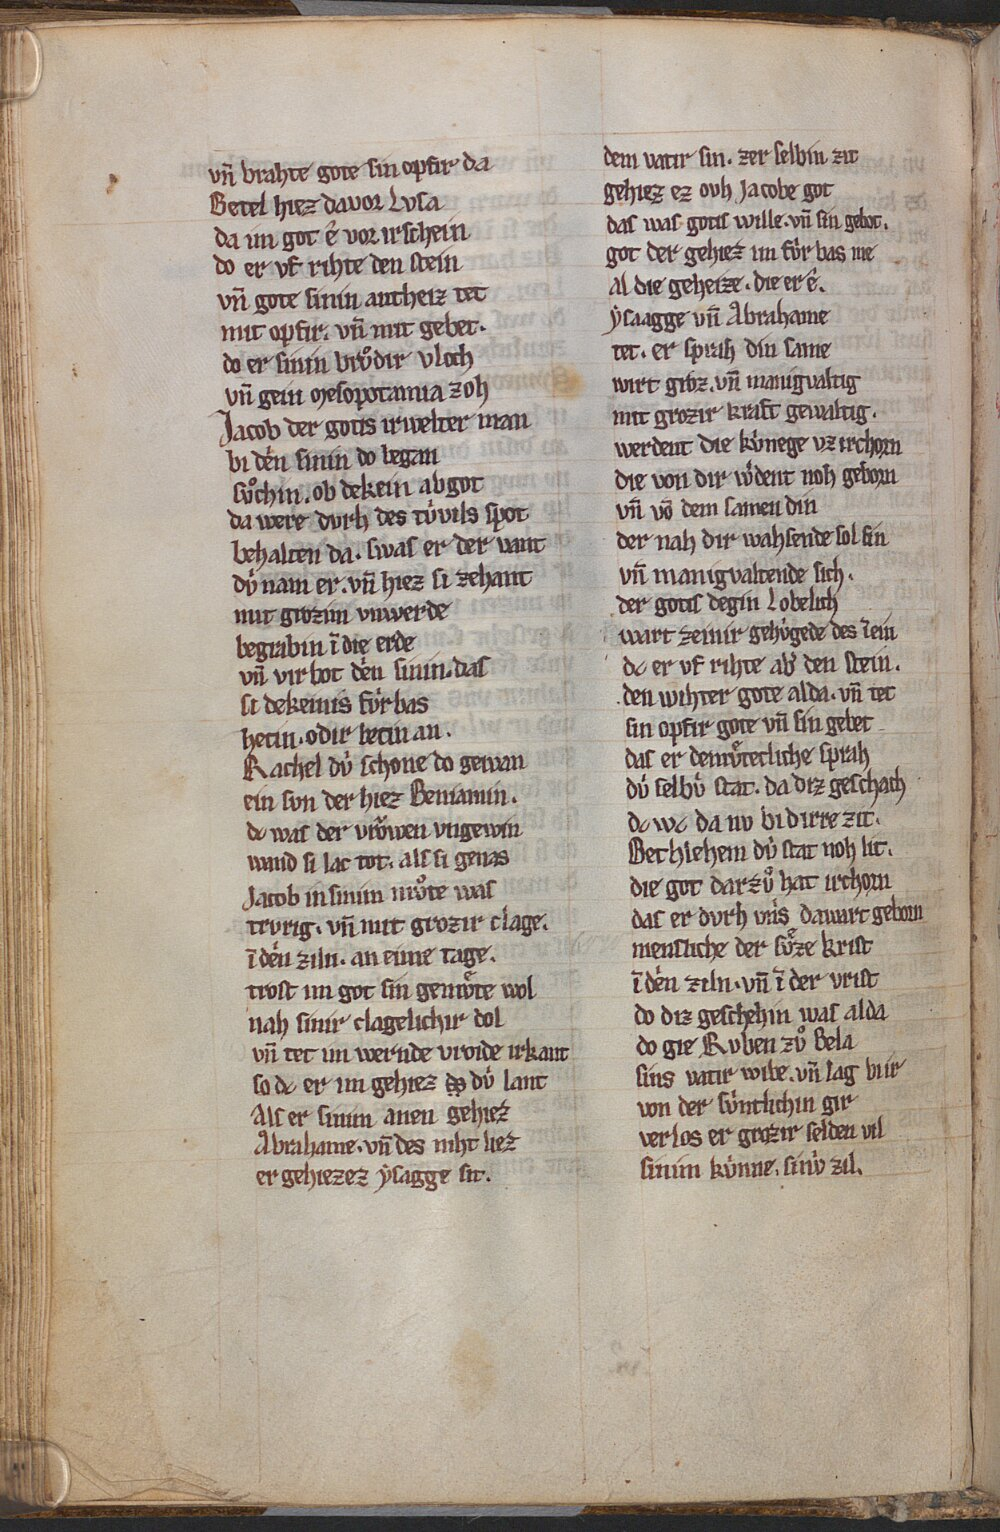 vn̄ brahte gote sin opfir da
Betel hiez dauor Lvsa
da im got ê vor irschein
do er vf rihte den stein
vn̄ gote sinin antheiz tet
mit opfir. vn̄ mit gebet.
do er sinin brv̊dir vloch
vn̄ gein mesopotamia zoh
Jacob der gotis irwelter man
bi dên sinin do began
sv̊chin. ob dekein abgot
da were dvrh des tv́vils spot
behalten da. swas er der vant
dv́ nam er. vn̄ hiez si zehant
mit grozim vnwerde
begrabin ī die erde
vn̄ virbot dên sinin. das
si dekeinis fv́rbas
hetin. odir betin an.
Rachel dv́ schone do gewan
ein svn der hiez Beniamin.
dc was der vrôwen vngewin
wand si lac tot. als si genas
Jacob in sinim mv̊te was
trvrig. vn̄ mit grozir clage.
ī dên ziln. an eime tage.
trost im got sin gemv̊te wol
nah sinir clagelichir dol
vn̄ tet im wernde vroide irkant
so dc er im gehiez dv́ lant
Als er sinim anen gehiez
Abrahame. vn̄ des niht liez
er gehiezez ẏsagge sit.
dem vatir sin. zer selbin zit
gehiez ez ovh Jacobe got
das was gotis wille. vn̄ sin gebot.
got der gehiez im fv́r bas me
Al die geheize. die er ê.
ẏsaagge vn̄ Abrahame
tet. er sprah din same
wirt groz. vn̄ manigvaltig
mit grozir kraft gewaltig.
werdent die kv́nege vz irchorn
die von dir wˀdent noh geborn
vn̄ vō dem samen din
der nah dir wahsende sol sin
vn̄ manigvaltende sich.
der gotis degin Lobelich
wart zeinir gehv́gede des īein
dc er vf rihte abˀ den stein.
den wihter gote alda. vn̄ tet
sin opfir gote vn̄ sin gebet
das er demv̊tecliche sprah
dv́ selbv́ stat. da diz geschach
dc wc da nv bi dirre zit.
Bethlehem dv́ stat noh lit.
die got darzv̊ hat irchorn
das er dvrh vn̄s da wart geborn
mensliche der sv̊ze krist
ī dên ziln. vn̄ ī der vrist
do diz geschehin was alda
do gie Rvben zv̊ Bela
sins vatir wibe. vn̄ lag bi ir
von der sv́ntlichin gir
verlos er grozir selden vil
sinim kv́nne. sinv́ zil.